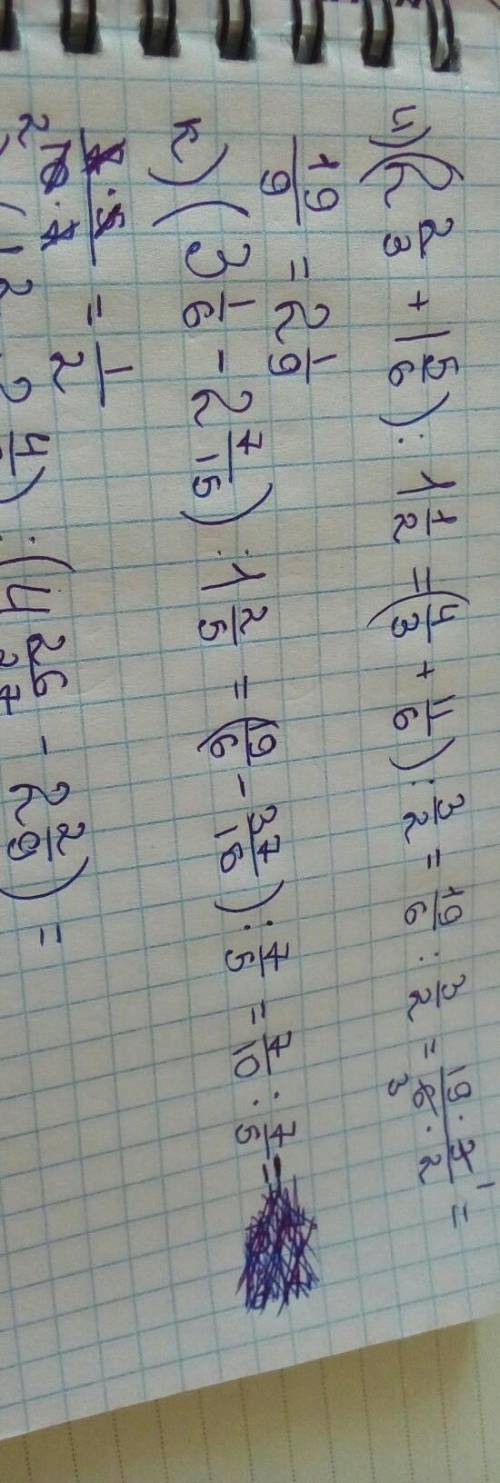 и) (2 2/3 + 1 5/6) : 1 1/2 = (4/3 + 11/6) : 3/2 = 19/6 : 3/2 = 19 · 2/6 · 2 =
19/9 = 2 1/9
к) (3 1/6 - 2 7/15) : 1 2/5 = (19/6 - 37/15) : 7/5 = 7/10 : 7/5 =
7 · 5/10 · 7 = 1/2
) : (4 26/27 - 2 2/9) =